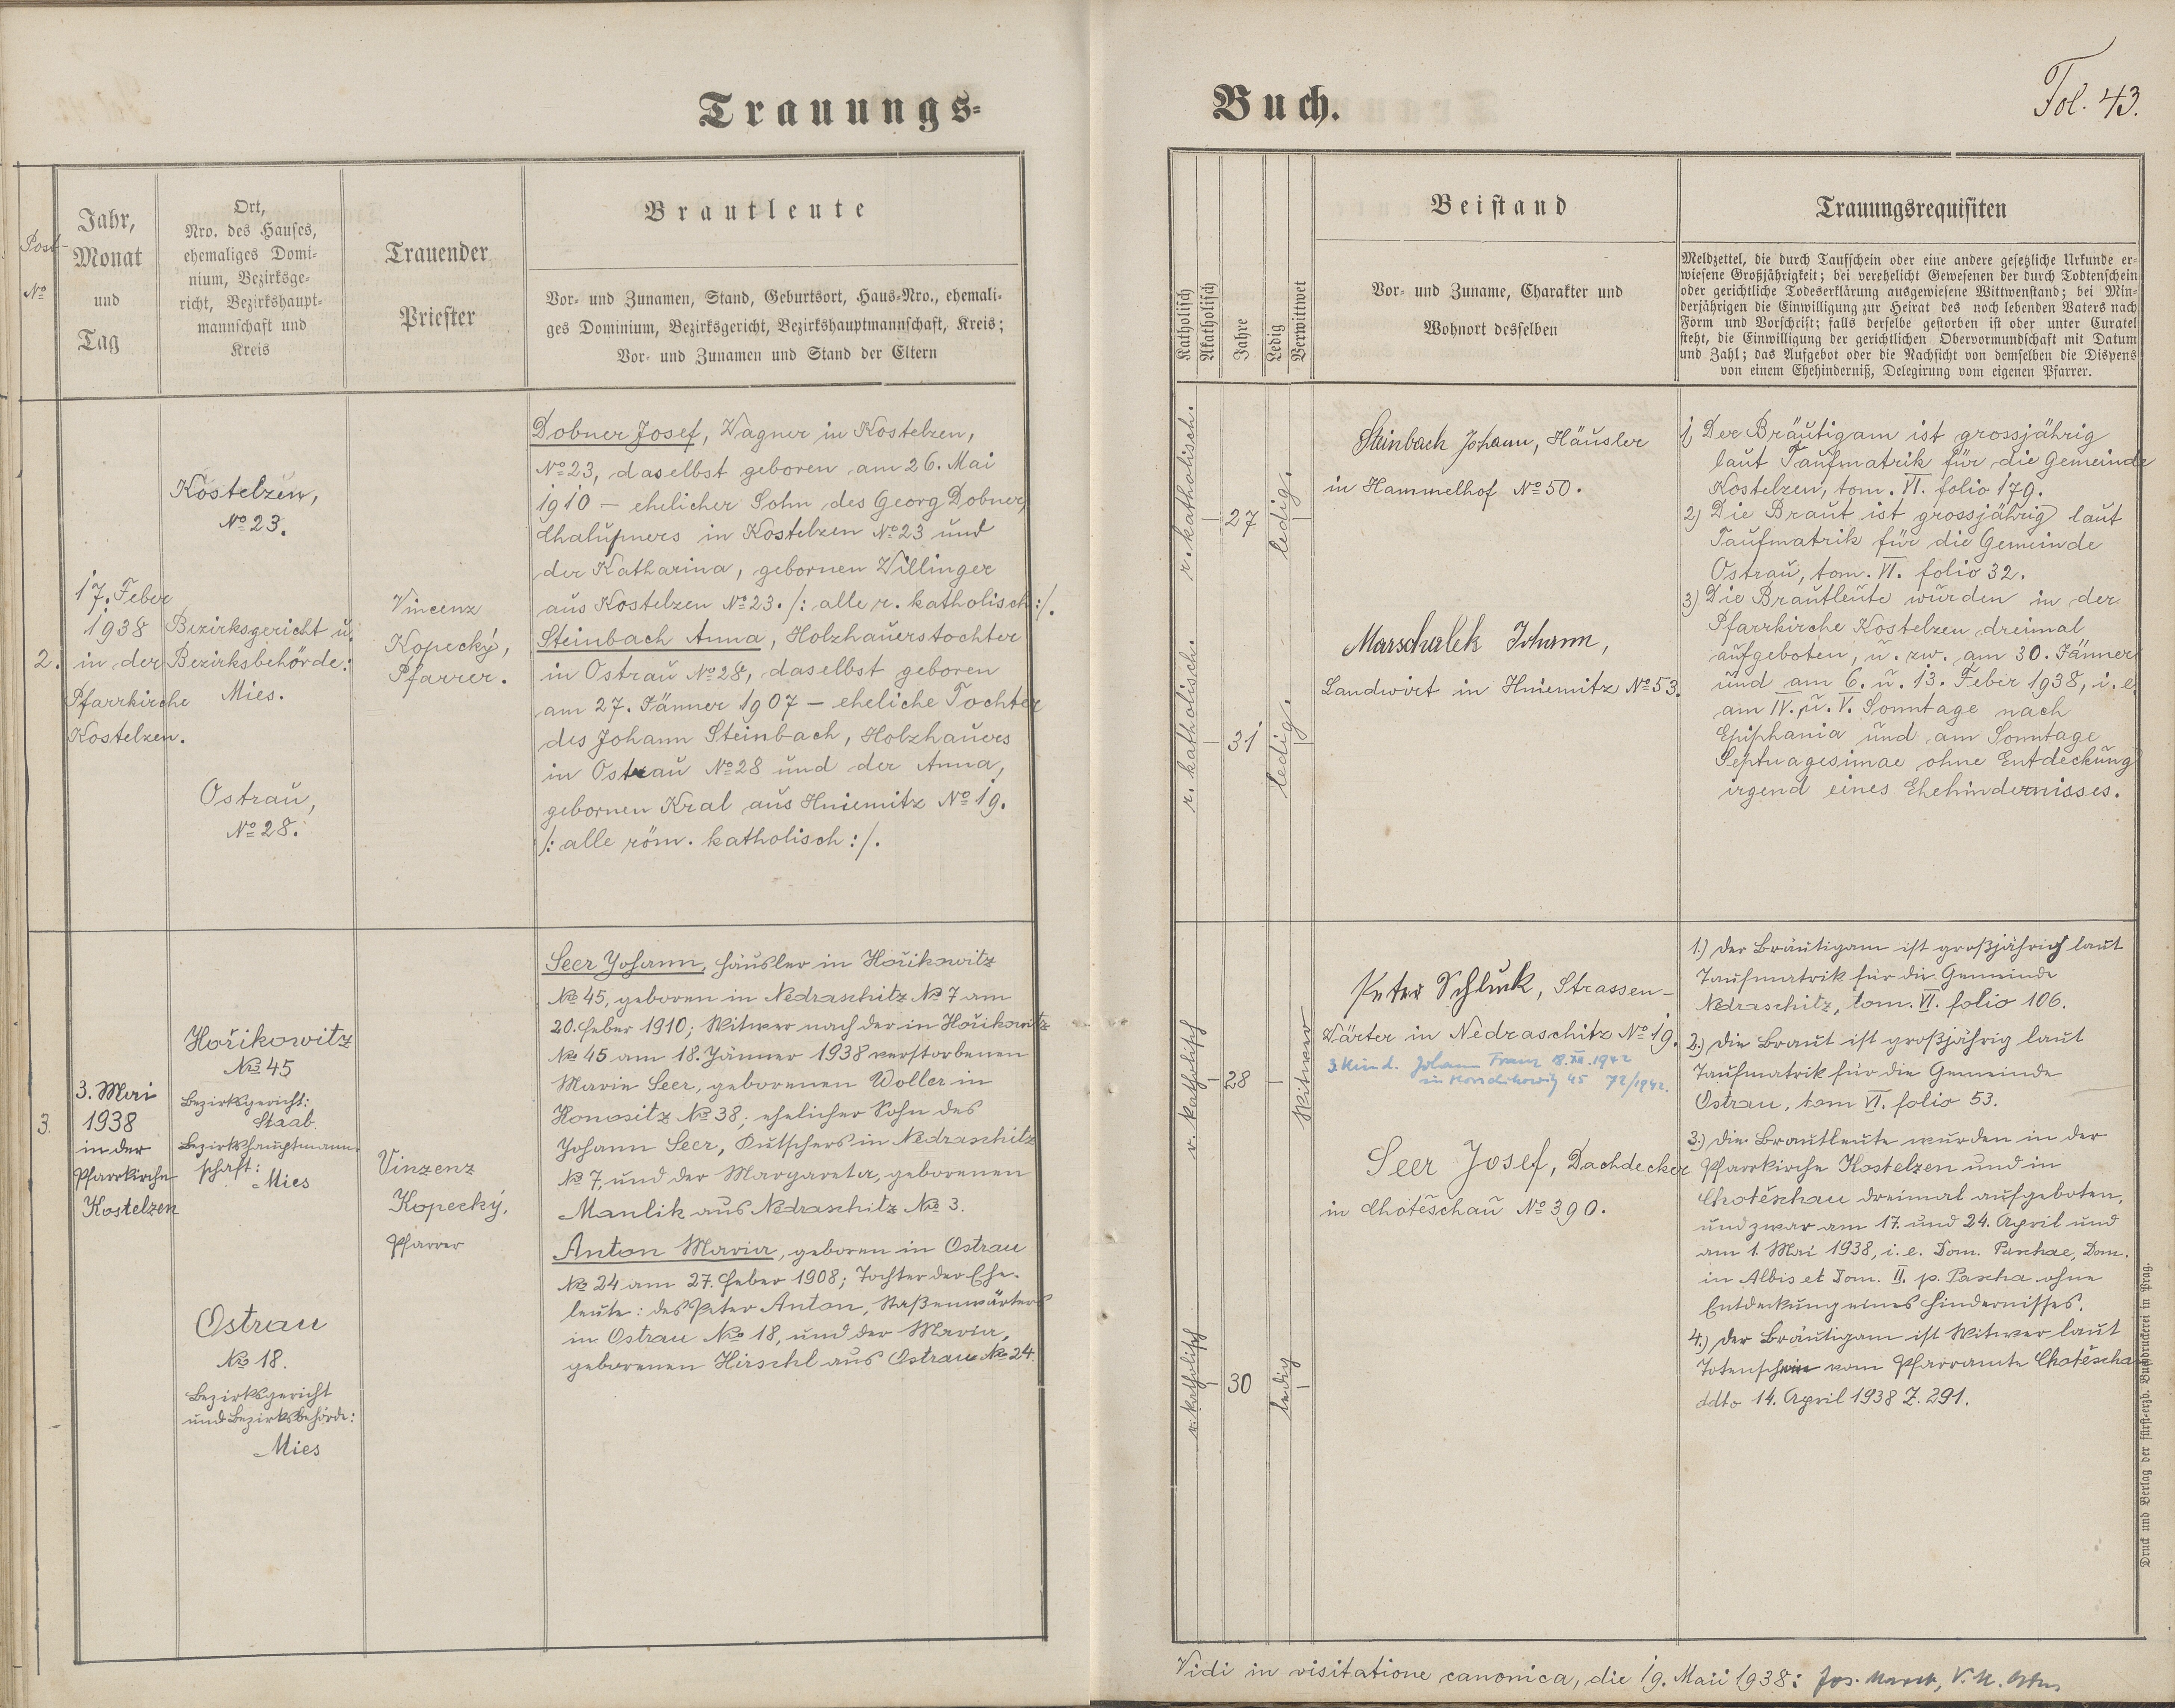 Trauungs=
Buch.
Fol. 43.
Post-
No
Jahr,
Monat
und
Tag
Ort,
Nro. des Hauses,
ehemaliges Domi-
nium, Bezirksge-
richt, Bezirkshaupt-
mannschaft und
Kreis
Trauender
Priester
Brautleute
Vor- und Zunamen, Stand, Geburtsort, Haus-Nro., ehemali-
ges Dominium, Bezirksgericht, Bezirkshauptmannschaft, Kreis;
Vor- und Zunamen und Stand der Eltern
Katholisch
Akatholisch
Jahre
Ledig
Verwittwet
Beistand
Vor- und Zuname, Charakter und
Wohnort desselben
Trauungsrequisiten
Meldzettel, die durch Taufschein oder eine andere gesetzliche Urkunde er-
wiesene Großjährigkeit; bei verehelicht Gewesenen der durch Todtenschein
oder gerichtliche Todeserklärung ausgewiesene Wittwenstand; bei Min-
derjährigen die Einwilligung zur Heirat des noch lebenden Vaters nach
Form und Vorschrift; falls derselbe gestorben ist oder unter Curatel
steht, die Einwilligung der gerichtlichen Obervormundschaft mit Datum
und Zahl; das Aufgebot oder die Nachsicht von demselben die Dispens
von einem Ehehinderniß, Delegirung vom eigenen Pfarrer.
2.
17. Feber
1938
in der
Pfarrkirche
Kostelzen.
Kostelzen,
No 23.
Bezirksgericht u.
Bezirksbehörde:
Mies.
Ostrau,
No 28.
Vincenz
Kopecký,
Pfarrer.
Dobner Josef, Wagner in Kostelzen,
No 23, daselbst geboren am 26. Mai
1910 – ehelicher Sohn des Georg Dobner,
Chalupners in Kostelzen No 23 und
der Katharina, gebornen Willinger
aus Kostelzen No 23. /: alle r. katholisch :/.
Steinbach Anna, Holzhauerstochter
in Ostrau No 28, daselbst geboren
am 27. Jänner 1907 – eheliche Tochter
des Johann Steinbach, Holzhauers
in Ostrau No 28 und der Anna,
gebornen Kral aus Hniemitz No 19.
/: alle röm. katholisch :/.
r. katholisch.
27
ledig.
r. katholisch.
31
ledig.
Steinbach Johann, Häusler
in Hammelhof No 50.
Marschalek Johann,
Landwirt in Hniemitz No 53.
1) Der Bräutigam ist grossjährig
laut Taufmatrik für die Gemeinde
Kostelzen, tom. VI. folio 179.
2) Die Braut ist grossjährig laut
Taufmatrik für die Gemeinde
Ostrau, tom. VI. folio 32.
3) Die Brautleute wurden in der
Pfarrkirche Kostelzen dreimal
aufgeboten, u. zw. am 30. Jänner
und am 6. u. 13. Feber 1938, i. e.
am IV. u. V. Sonntage nach
Epiphania und am Sonntage
Septuagesimae ohne Entdeckung
irgend eines Ehehindernisses.
3.
3. Mai
1938
in der
Pfarrkirche
Kostelzen
Hořikowitz
No 45
Bezirksgericht:
Staab.
Bezirkshauptmann-
schaft:
Mies
Ostrau
No 18.
Bezirksgericht
und Bezirksbehörde:
Mies
Vinzenz
Kopecký,
Pfarrer
Seer Johann, Häusler in Hořikowitz
No 45, geboren in Nedraschitz No 7 am
20. Feber 1910; Witwer nach der in Hořikowitz
No 45 am 18. Jänner 1938 verstorbenen
Marie Seer, geborenen Woller in
Honositz No 38; ehelicher Sohn des
Johann Seer, Kutschers in Nedraschitz
No 7, und der Margareta, geborenen
Manlik aus Nedraschitz No 3.
Anton Maria, geboren in Ostrau
No 24 am 27. Feber 1908; Tochter der Ehe-
leute: des Peter Anton, Straßenwärters
in Ostrau No 18, und der Maria,
geborenen Hirschl aus Ostrau No 24.
r. katholisch
28
Witwer
r. katholisch
30
ledig
Peter Schluck, Strassen-
Wärter in Nedraschitz No 19.
3. Kind. Johann Franz 8. XII. 1942
in Horschikowitz 45 72/1942.
Seer Josef, Dachdecker
in Chotěschau No 390.
1.) Der Bräutigam ist großjährig laut
Taufmatrik für die Gemeinde
Nedraschitz, tom. VI. folio 106.
2.) Die Braut ist großjährig laut
Taufmatrik für die Gemeinde
Ostrau, tom VI. folio 53.
3.) Die Brautleute wurden in der
Pfarrkirche Kostelzen und in
Chotěschau dreimal aufgeboten,
und zwar am 17. und 24. April und
am 1. Mai 1938, i. e. Dom. Paschae, Dom.
in Albis et Dom. II. p. Pascha ohne
Entdeckung eines Hindernisses.
4.) Der Bräutigam ist Witwer laut
Totenschein vom Pfarramte Chotěschau
ddto 14. April 1938 Z. 291.
Druck und Verlag der fürst-erzb. Buchdruckerei in Prag.
Vidi in visitatione canonica, die 19. Maii 1938: